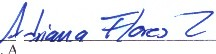 Adriana Flores Z
A